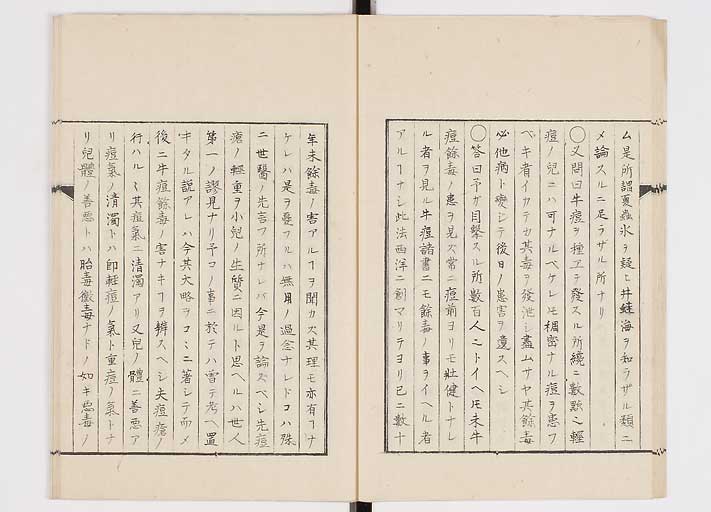 ム是所謂夏蟲氷ヲ疑ヒ井蛙海ヲ和ラザル類ニ
メ論スルニ足ラザル所ナリ
〇又問曰牛痘ヲ種ヱテ發スル所纔ニ數顆ニ輕
痘ノ兒ニハ可ナルヘケレ𪜈稠密ナル痘ヲ患フ
ベキ者イカテカ其毒ヲ發泄シ盡ムサヤ其餘毒
必他病ト變シテ後日ノ患害ヲ遺スヘシ
〇答曰予ガ目擊スル所數百人ニトイヘ𪜈未牛
痘餘毒ノ患ヲ見ズ常ニ痘前ヨリモ壯健トナレ
ル者ヲ見ル牛痘諸書ニモ餘毒ノ事ヲイヘル者
アルヿナシ此法西洋ニ創マリテヨリ已ニ數十
年未餘毒ノ害アルヿヲ聞カズ其理モ亦有ヿナ
ケレハ是ヲ憂フルハ無用ノ過念ナレドコハ殊
ニ世醫ノ先言フ所ナレバ今是ヲ論ズベシ先痘
瘡ノ輕重ヲ小兒ノ生質ニ因ルト思ヘルハ世人
第一ノ謬見ナリ予コノ事ニ於テハ嘗テ考ヘ置
キタル説アレハ今其大略ヲコヽニ著シテ而メ
後ニ牛痘餘毒ノ害ナキヿヲ辨スヘシ夫痘瘡ノ
行ハルヽ其痘氣ニ清濁アリ又兒ノ體ニ善惡ア
リ痘氣ノ清濁トハ即輕痘ノ氣ト重痘ノ氣トナ
リ兒體ノ善惡トハ胎毒黴毒ナドノ如キ惡毒ノ